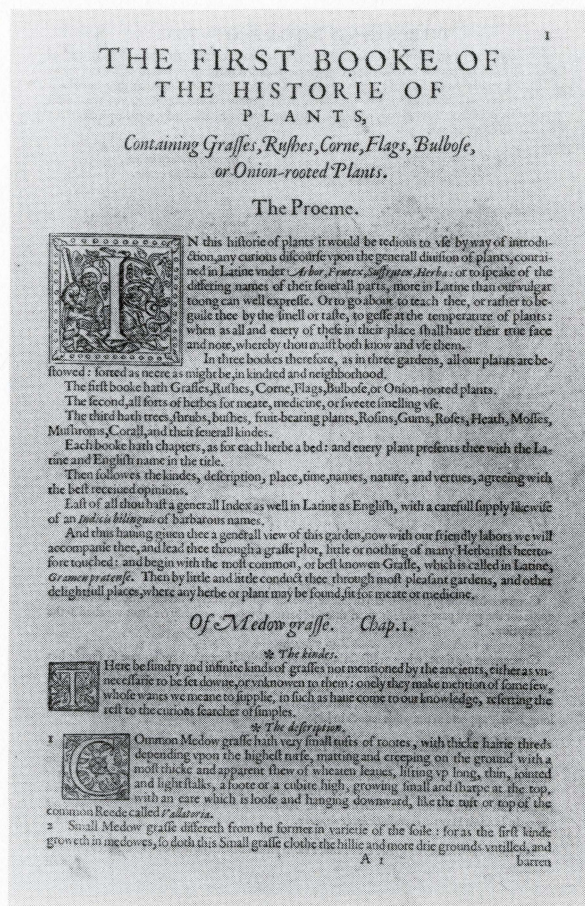 1
THE FIRST BOOKE OF
THE HISTORIE OF
PLANTS,
Containing Graſſes, Ruſhes, Corne, Flags, Bulboſe,
or Onion-rooted Plants.
The Proeme.
IN this hiſtorie of plants it would be tedious to vſe by way of introdu-
ction, any curious diſcourſe vpon the generall diuiſion of plants, contai-
ned in Latine vnder Arbor, Frutex, Suffrutex, Herba: or to ſpeake of the
differing names of their ſeuerall parts, more in Latine than our vulgar
toong can well expreſſe. Or to go about to teach thee, or rather to be-
guile thee by the ſmell or taſte, to geſſe at the temperature of plants:
when as all and euery of theſe in their place ſhall haue their true face
and note, whereby thou maiſt both know and vſe them.
In three bookes therefore, as in three gardens, all our plants are be-
ſtowed: ſorted as neere as might be, in kindred and neighborhood.
The firſt booke hath Graſſes, Ruſhes, Corne, Flags, Bulboſe, or Onion-rooted plants.
The ſecond, all ſorts of herbes for meate, medicine, or ſweete ſmelling vſe.
The third hath trees, ſhrubs, buſhes, fruit-bearing plants, Roſins, Gums, Roſes, Heath, Moſſes,
Muſhroms, Corall, and their ſeuerall kindes.
Each booke hath chapters, as for each herbe a bed: and euery plant preſents thee with the La-
tine and Engliſh name in the title.
Then followes the kindes, deſcription, place, time, names, nature, and vertues, agreeing with
the beſt receiued opinions.
Laſt of all thou haſt a generall Index as well in Latine as Engliſh, with a carefull ſupply likewiſe
of an Indicis bilinguis of barbarous names.
And thus hauing giuen thee a generall view of this garden, now with our friendly labors we will
accompanie thee, and lead thee through a graſſe plot, little or nothing of many Herbariſts heerto-
fore touched: and begin with the moſt common, or beſt knowen Graſſe, which is called in Latine,
Gramen pratenſe. Then by little and little conduct thee through moſt pleaſant gardens, and other
delightfull places, where any herbe or plant may be found, fit for meate or medicine.
Of Medow graſſe. Chap. 1.
❧ The kindes.
THere be ſundry and infinite kinds of graſſes not mentioned by the ancients, either as vn-
neceſſarie to be ſet downe, or vnknowen to them: onely they make mention of ſome few,
whoſe wants we meane to ſupplie, in ſuch as haue come to our knowledge, referring the
reſt to the curious ſearcher of ſimples.
❧ The deſcription.
1 COmmon Medow graſſe hath very ſmall tufts of rootes, with thicke hairie threds
depending vpon the higheſt turfe, matting and creeping on the ground with a
moſt thicke and apparent ſhew of wheaten leaues, lifting vp long, thin, iointed
and light ſtalks, a foote or a cubite high, growing ſmall and ſharpe at the top,
with an eare which is looſe and hanging downward, like the tuft or top of the
common Reede called Vallatoria.
2 Small Medow graſſe differeth from the former in varietie of the ſoile: for as the firſt kinde
groweth in medowes, ſo doth this Small graſſe clothe the hillie and more drie grounds vntilled, and
A 1 barren